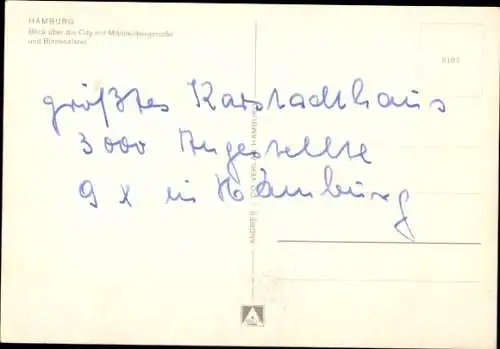 HAMBURG
Blick über die City mit Mönckebergstraße
und Binnenalster
größtes Karstadthaus
3000 Angestellte
9 x in Hamburg
HAMBURG